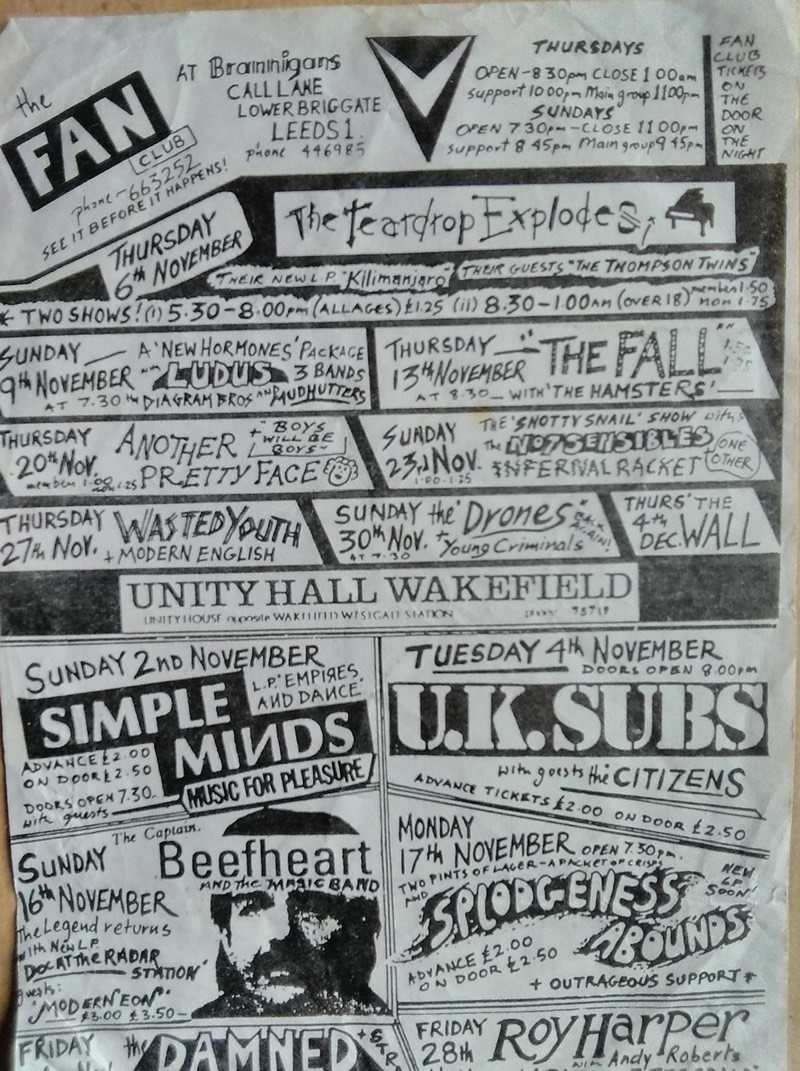 the
FAN
CLUB
phone-663252
SEE IT BEFORE IT HAPPENS!
AT Brannigans
CALL LANE
LOWER BRIGGATE
LEEDS 1.
phone 446985
THURSDAYS
OPEN-8 30pm CLOSE 1 00am
support 10 00pm Main group 11 00pm
SUNDAYS
OPEN 7 30pm-CLOSE 11 00pm
support 8 45pm Main group 9 45pm
FAN
CLUB
TICKETS
ON
THE
DOOR
ON
THE
NIGHT
THURSDAY
6th NOVEMBER
The Teardrop Explodes
THEIR NEW L.P. "Kilimanjaro" THEIR GUESTS "THE THOMPSON TWINS"
TWO SHOWS! (i) 5.30-8.00pm (ALL AGES) £1.25 (ii) 8.30-1.00AM (OVER 18) members 1.50
non 1.75
SUNDAY
9th NOVEMBER
AT 7.30
A 'NEW HORMONES' PACKAGE
LUDUS 3 BANDS
DIAGRAM BROS AND MUDHUTTERS
THURSDAY
13th NOVEMBER
AT 8.30
THE FALL
WITH 'THE HAMSTERS'
THURSDAY
20th NOV.
members 1.00 1.25
ANOTHER
PRETTY FACE
+ "BOYS
WILL BE
BOYS"
SUNDAY
23rd NOV.
1.00 1.25
THE 'SNOTTY SNAIL' SHOW with
the NOTSENSIBLES
INFERNAL RACKET
ONE
OTHER
THURSDAY
27th NOV.
WASTED YOUTH
+ MODERN ENGLISH
SUNDAY
30th NOV.
AT 7.30
the "Drones"
+ Young Criminals
THURS' THE
4th
DEC. WALL
UNITY HALL WAKEFIELD
UNITY HOUSE opposite WAKEFIELD WESTGATE STATION
SUNDAY 2ND NOVEMBER
L.P. 'EMPIRES
AND DANCE'
SIMPLE
MINDS
ADVANCE £2.00
ON DOOR £2.50
DOORS OPEN 7.30
with guests
MUSIC FOR PLEASURE
TUESDAY 4th NOVEMBER
DOORS OPEN 8.00pm
U.K. SUBS
with guests the CITIZENS
ADVANCE TICKETS £2.00 ON DOOR £2.50
The Captain.
Beefheart
AND THE MAGIC BAND
SUNDAY
16th NOVEMBER
The Legend returns
with New L.P.
DOC AT THE RADAR
STATION'
guests:
'MODERN EON'
£3.00 £3.50
MONDAY
17th NOVEMBER OPEN 7.30pm.
TWO PINTS OF LAGER-A PACKET OF CRISPS
AND
SPLODGENESS
ABOUNDS
NEW
LP
SOON!
ADVANCE £2.00
ON DOOR £2.50
+ OUTRAGEOUS SUPPORT *
FRIDAY
the
DAMNED
FRIDAY
28th
Roy Harper
with Andy Roberts